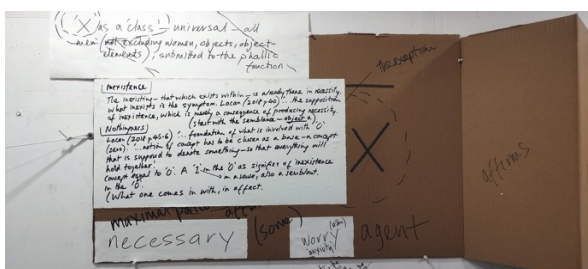 'X' as a 'class' – universal – all
men (not excluding women, objects, object-
elements), submitted to the phallic
function
the exception
Inexistence
The inexisting – that which exists within – is already there in necessity.
What inexists is the symptom. Lacan (2018 p40) '... the supposition
of inexistence, which is merely a consequence of producing necessity.
(start with the semblance – object a)
Nothingness
Lacan (2018 p45-6) '... foundation of what is involved with 'O'
(zero). '... notion of concept has to be chosen as a base – a concept
that is supposed to denote something – so that everything will
hold together.'
concept equal to 'O'. A '1' in the 'O' as signifier of inexistence
in a sense, also a semblant.
in the 'O'.
(What one comes in with, in effect.
X
affirms
necessary
(some)
worry
anxiety
agent